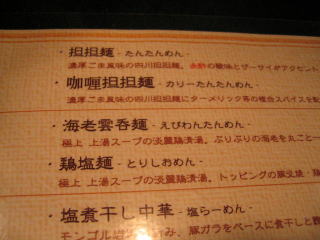 ・担担麺 - たんたんめん -
濃厚ごま風味の四川担担麺。赤酢の酸味とザーサイがアクセント
・咖喱担担麺 - カリーたんたんめん -
濃厚ごま風味の四川担担麺にターメリック等の複合スパイスを配
・海老雲呑麺 - えびわんたんめん -
極上 上湯スープの淡麗鶏清湯。ぷりぷりの海老を丸ごと一
・鶏塩麺 - とりしおめん -
極上 上湯スープの淡麗鶏清湯。トッピングの豚叉焼・鶏
・塩煮干し中華 - 塩らーめん -
モンゴル岩塩 み、豚ガラをベースに煮干しと